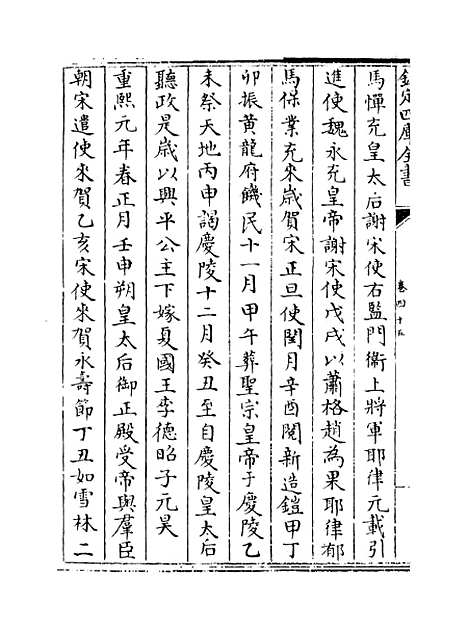 欽定四庫全書
卷四十五
馬憚充皇太后謝宋使右監門衞上將軍耶律元載引
進使魏永充皇帝謝宋使戊戌以蕭格趙為果耶律郁
馬保業充來歳賀宋正旦使閏月辛酉閱新造鎧甲丁
卯振黄龍府饑民十一月甲午葬聖宗皇帝于慶陵乙
未祭天地丙申謁慶陵十二月癸丑至自慶陵皇太后
聽政是歳以興平公主下嫁夏國王李德昭子元昊
重熙元年春正月壬申朔皇太后御正殿受帝與羣臣
朝宋遣使來賀乙亥宋使來賀永壽節丁丑如雪林二